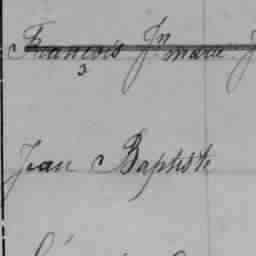 François Jn marie
Jean Baptiste